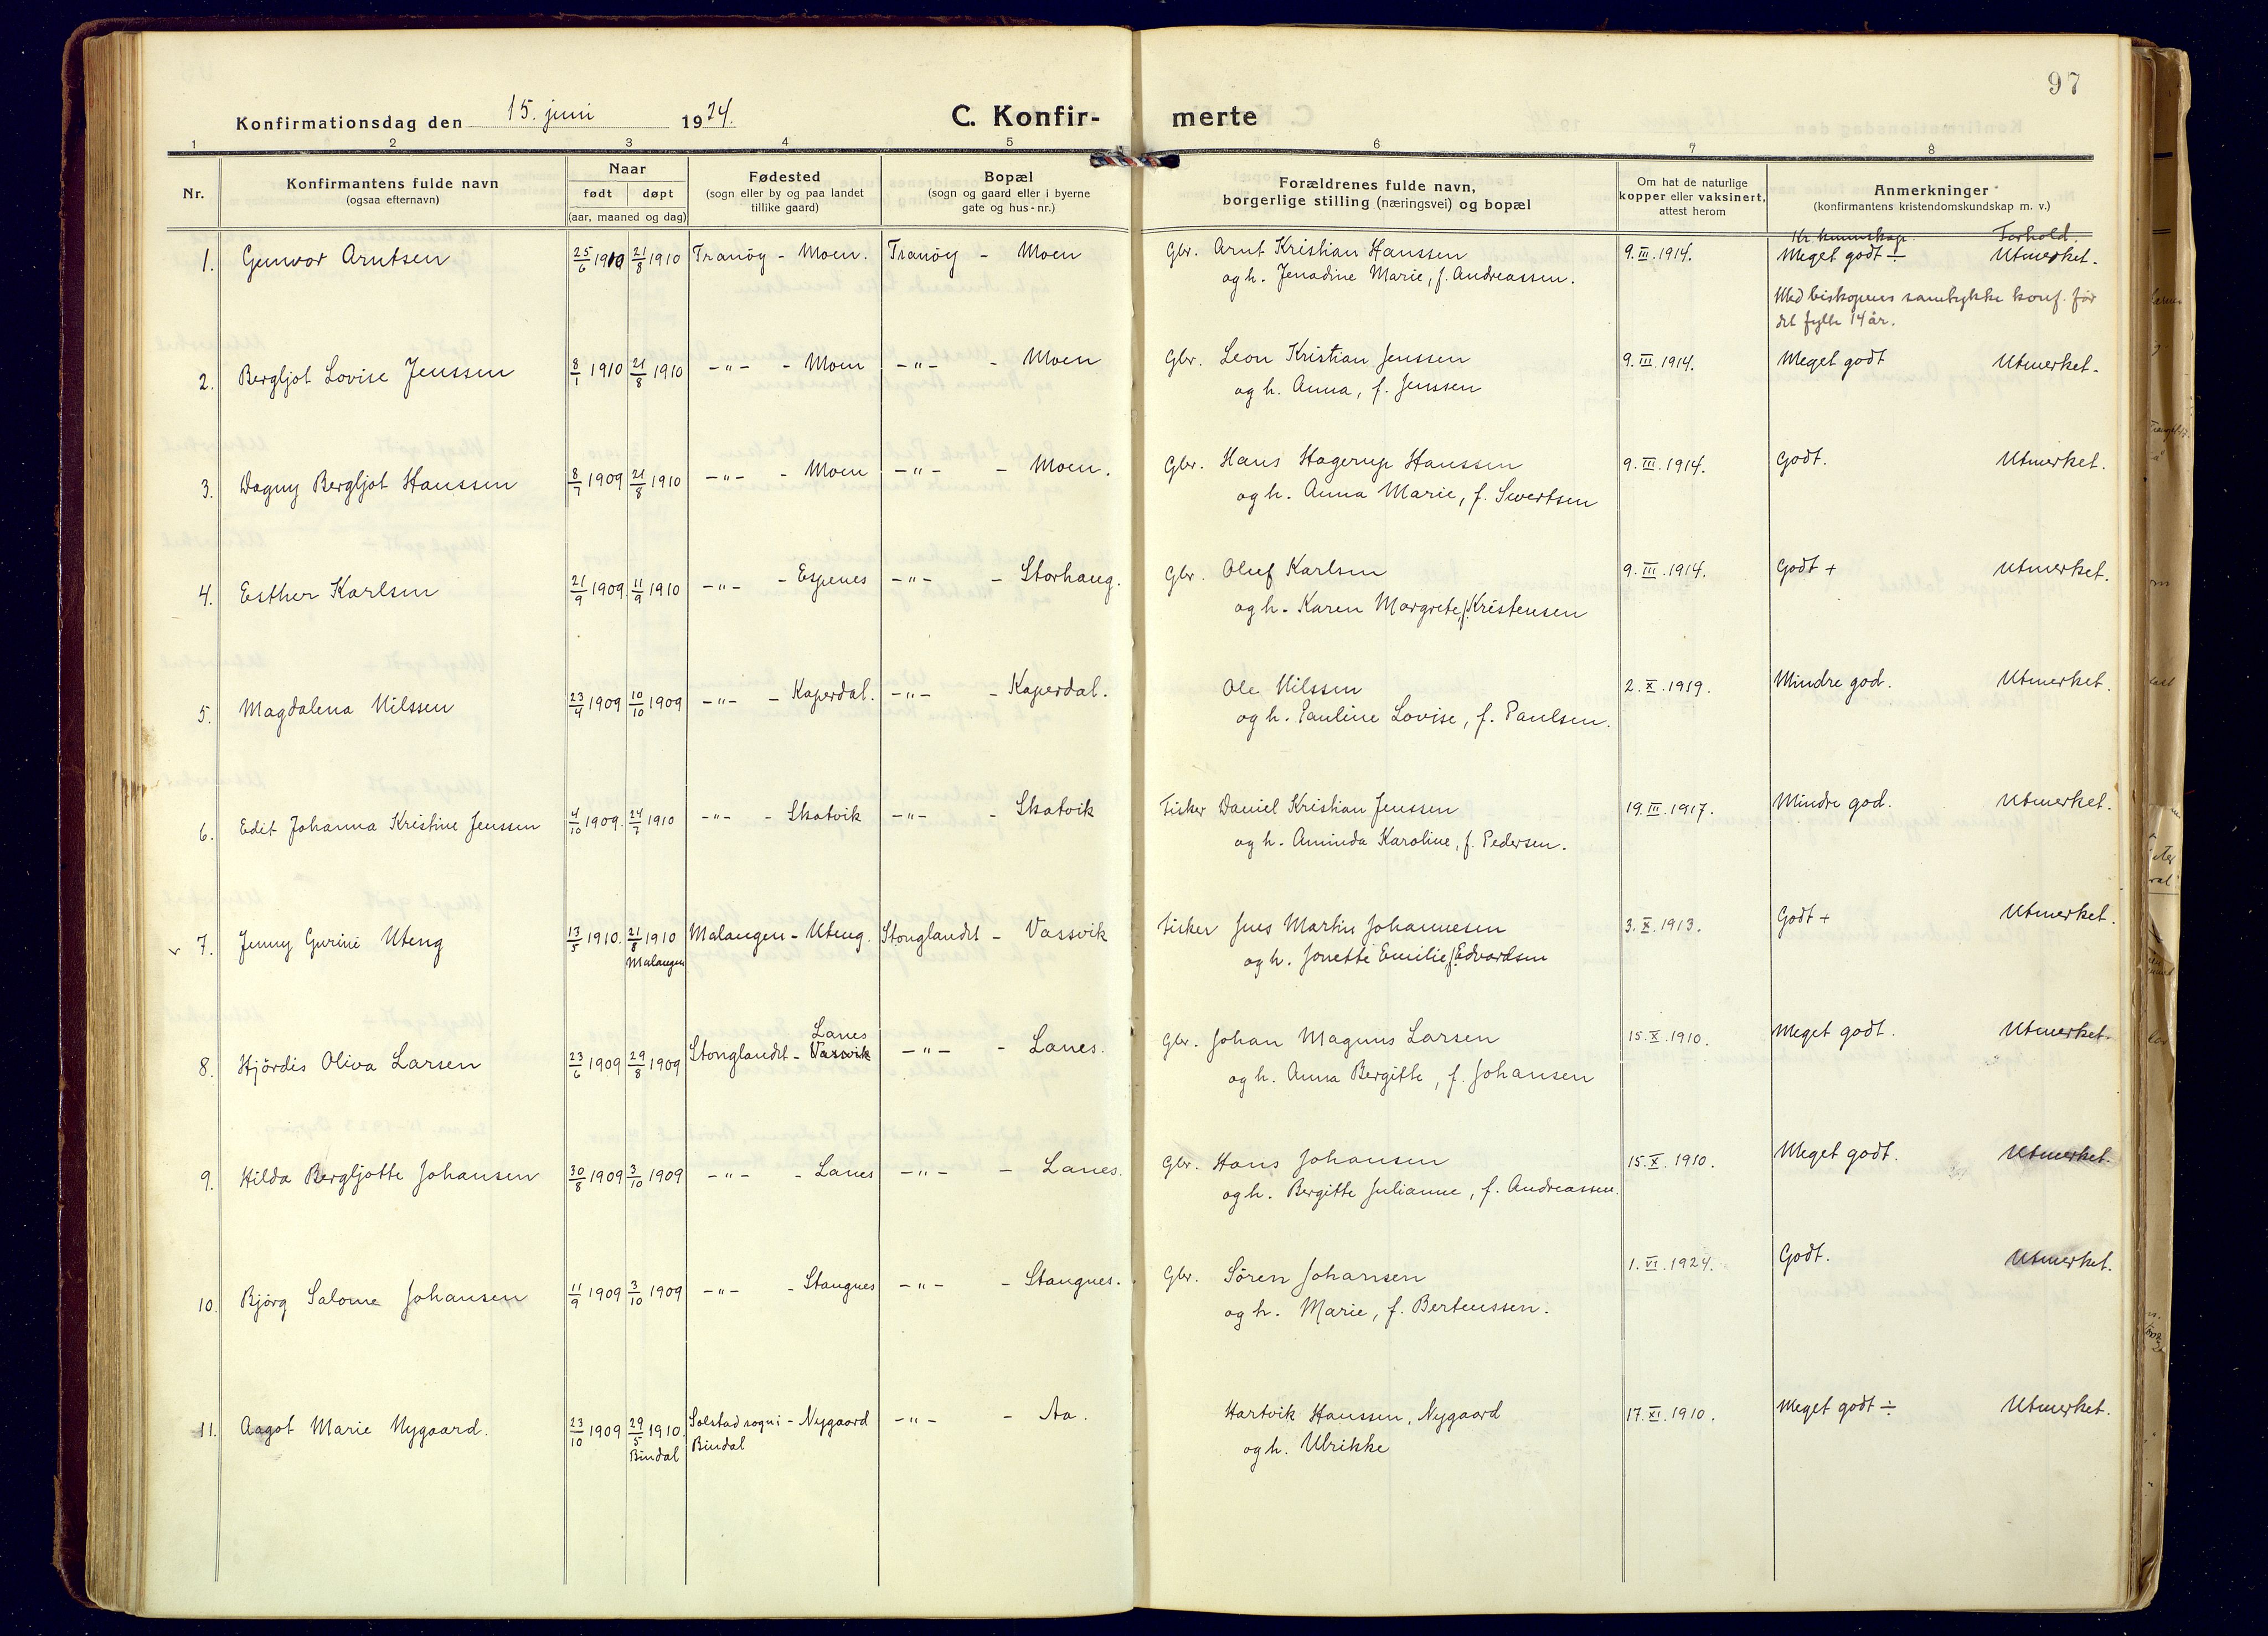 97
Konfirmationsdag den 15. juni 1924. C. Konfir- merte
1 2 3 4 5 6 7 8
Nr. Konfirmantens fulde navn (ogsaa efternavn) Naar født døpt (aar, maaned og dag) Fødested (sogn eller by og paa landet tillike gaard) Bopæl (sogn og gaard eller i byerne gate og hus-nr.) Forældrenes fulde navn, borgerlige stilling (næringsvei) og bopæl Om hat de naturlige kopper eller vaksinert, attest herom Anmerkninger (konfirmantens kristendomskundskap m. v.)
Kr. kunnskap. Forhold.
1. Gunvor Arntsen 25/6 1910 21/8 1910 Tranöy - Moen. Tranöy - Moen Gbr. Arnt Kristian Hanssen 9.III.1914. Meget godt ÷ Utmerket.
og h. Jenadine Marie, f. Andreassen.
Med biskopens samtykke konf. før
det fyllte 14 år.
2. Bergljot Lovise Jenssen 8/1 1910 21/8 1910 -"- - Moen -"- - Moen Gbr. Leon Kristian Jenssen 9.III.1914. Meget godt Utmerket.
og h. Anna, f. Jenssen
3. Dagny Bergljot Hanssen 8/7 1909 21/8 1910 -"- - Moen -"- - Moen. Gbr. Hans Hagerup Hanssen 9.III.1914. Godt. Utmerket.
og h. Anna Marie, f. Sivertsen
4. Esther Karlsen 21/9 1909. 11/9 1910 -"- - Espenes -"- - Storhaug. Gbr. Oluf Karlsen 9.III.1914. Godt + Utmerket.
og h. Karen Margrete, f. Kristensen
5. Magdalena Nilssen 23/4 1909 10/10 1909 -"- - Kaperdal. -"- - Kaperdal. Ole Nilssen 2.X.1919. Mindre god. Utmerket.
og h. Pauline Lovise, f. Paulsen.
6. Edit Johanna Kristine Jenssen 4/10 1909. 24/7 1910 -"- - Skatvik -"- - Skatvik Fisker Daniel Kristian Jenssen 19.III.1917. Mindre god. Utmerket.
og h. Aminda Karoline, f. Pedersen.
7. Jenny Gurine Uteng 13/5 1910. 21/8 1910 Malangen - Uteng. Stonglandet - Vassvik Fisker Jens Martin Johannesen 3.X.1913. Godt + Utmerket.
Malangen og h. Jonette Emilie, f. Edvardsen
Lanes
8. Hjördis Oliva Larsen 23/6 1909 29/8 1909 Stonglandet - Vassvik -"- - Lanes. Gbr. Johan Magnus Larsen 15.X.1910. Meget godt. Utmerket.
og h. Anna Bergitte, f. Johansen
9. Hilda Bergljotte Johansen 30/8 1909 3/10 1909 -"- - Lanes -"- - Lanes. Gbr. Hans Johansen 15.X.1910. Meget godt. Utmerket.
og h. Bergitte Julianne, f. Andreassen.
10. Björg Salome Johansen 11/9 1909 3/10 1909 -"- - Stangnes -"- - Stangnes. Gbr. Sören Johansen 1.VI.1924. Godt. Utmerket.
og h. Marie, f. Bertenssen.
11. Aagot Marie Nygaard. 23/10 1909 29/5 1910. Solstad sogn i - Nygaard -"- - Aa. Hartvik Hanssen, Nygaard 17.XI.1910. Meget godt ÷ Utmerket.
Bindal Bindal og h. Ulrikke